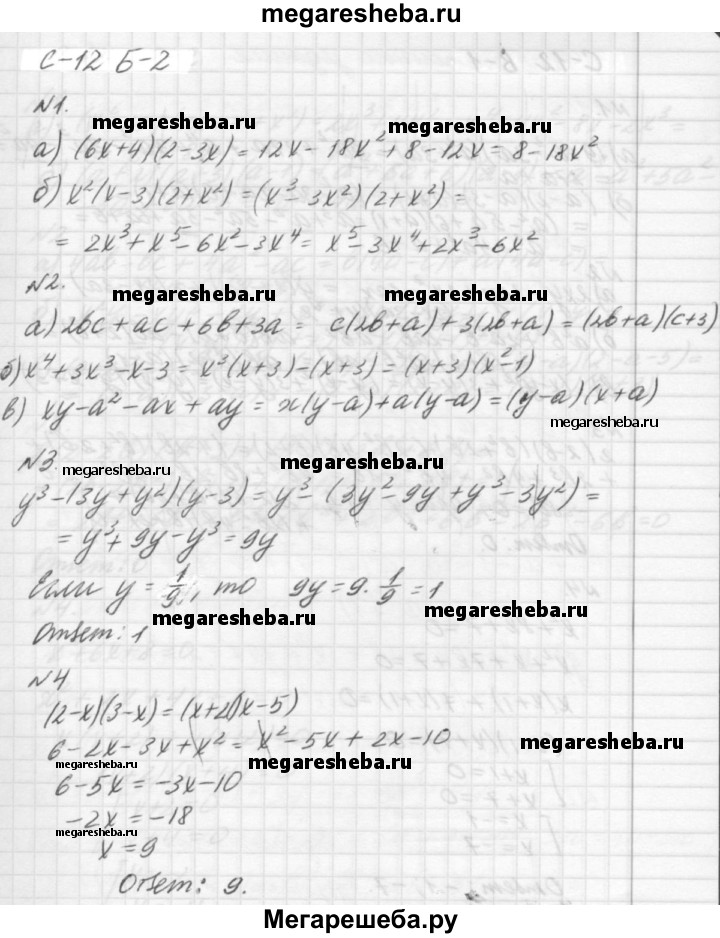 megaresheba.ru
С-12 Б-2
№1.
megaresheba.ru megaresheba.ru
а) (6x+4)(2-3x) = 12x - 18x² + 8 - 12x = 8 - 18x²
б) x²(x-3)(2+x²) = (x³ - 3x²)(2+x²) =
= 2x³ + x⁵ - 6x² - 3x⁴ = x⁵ - 3x⁴ + 2x³ - 6x²
№2.
megaresheba.ru megaresheba.ru
а) 2bc + ac + 6b + 3a = c(2b+a) + 3(2b+a) = (2b+a)(c+3)
б) x⁴ + 3x³ - x - 3 = x³(x+3) - (x+3) = (x+3)(x²-1)
в) xy - a² - ax + ay = x(y-a) + a(y-a) = (y-a)(x+a)
megaresheba.ru
№3.
megaresheba.ru megaresheba.ru
y³ - (3y + y²)(y-3) = y³ - (3y² - 9y + y³ - 3y²) =
= y³ + 9y - y³ = 9y
Если y = 1/9, то 9y = 9 · 1/9 = 1
megaresheba.ru megaresheba.ru
Ответ: 1
№4
(2-x)(3-x) = (x+2)(x-5)
6 - 2x - 3x + x² = x² - 5x + 2x - 10
megaresheba.ru
megaresheba.ru
6 - 5x = -3x - 10
-2x = -18
megaresheba.ru
x = 9
megaresheba.ru
Ответ: 9.
Мегарешеба.ру